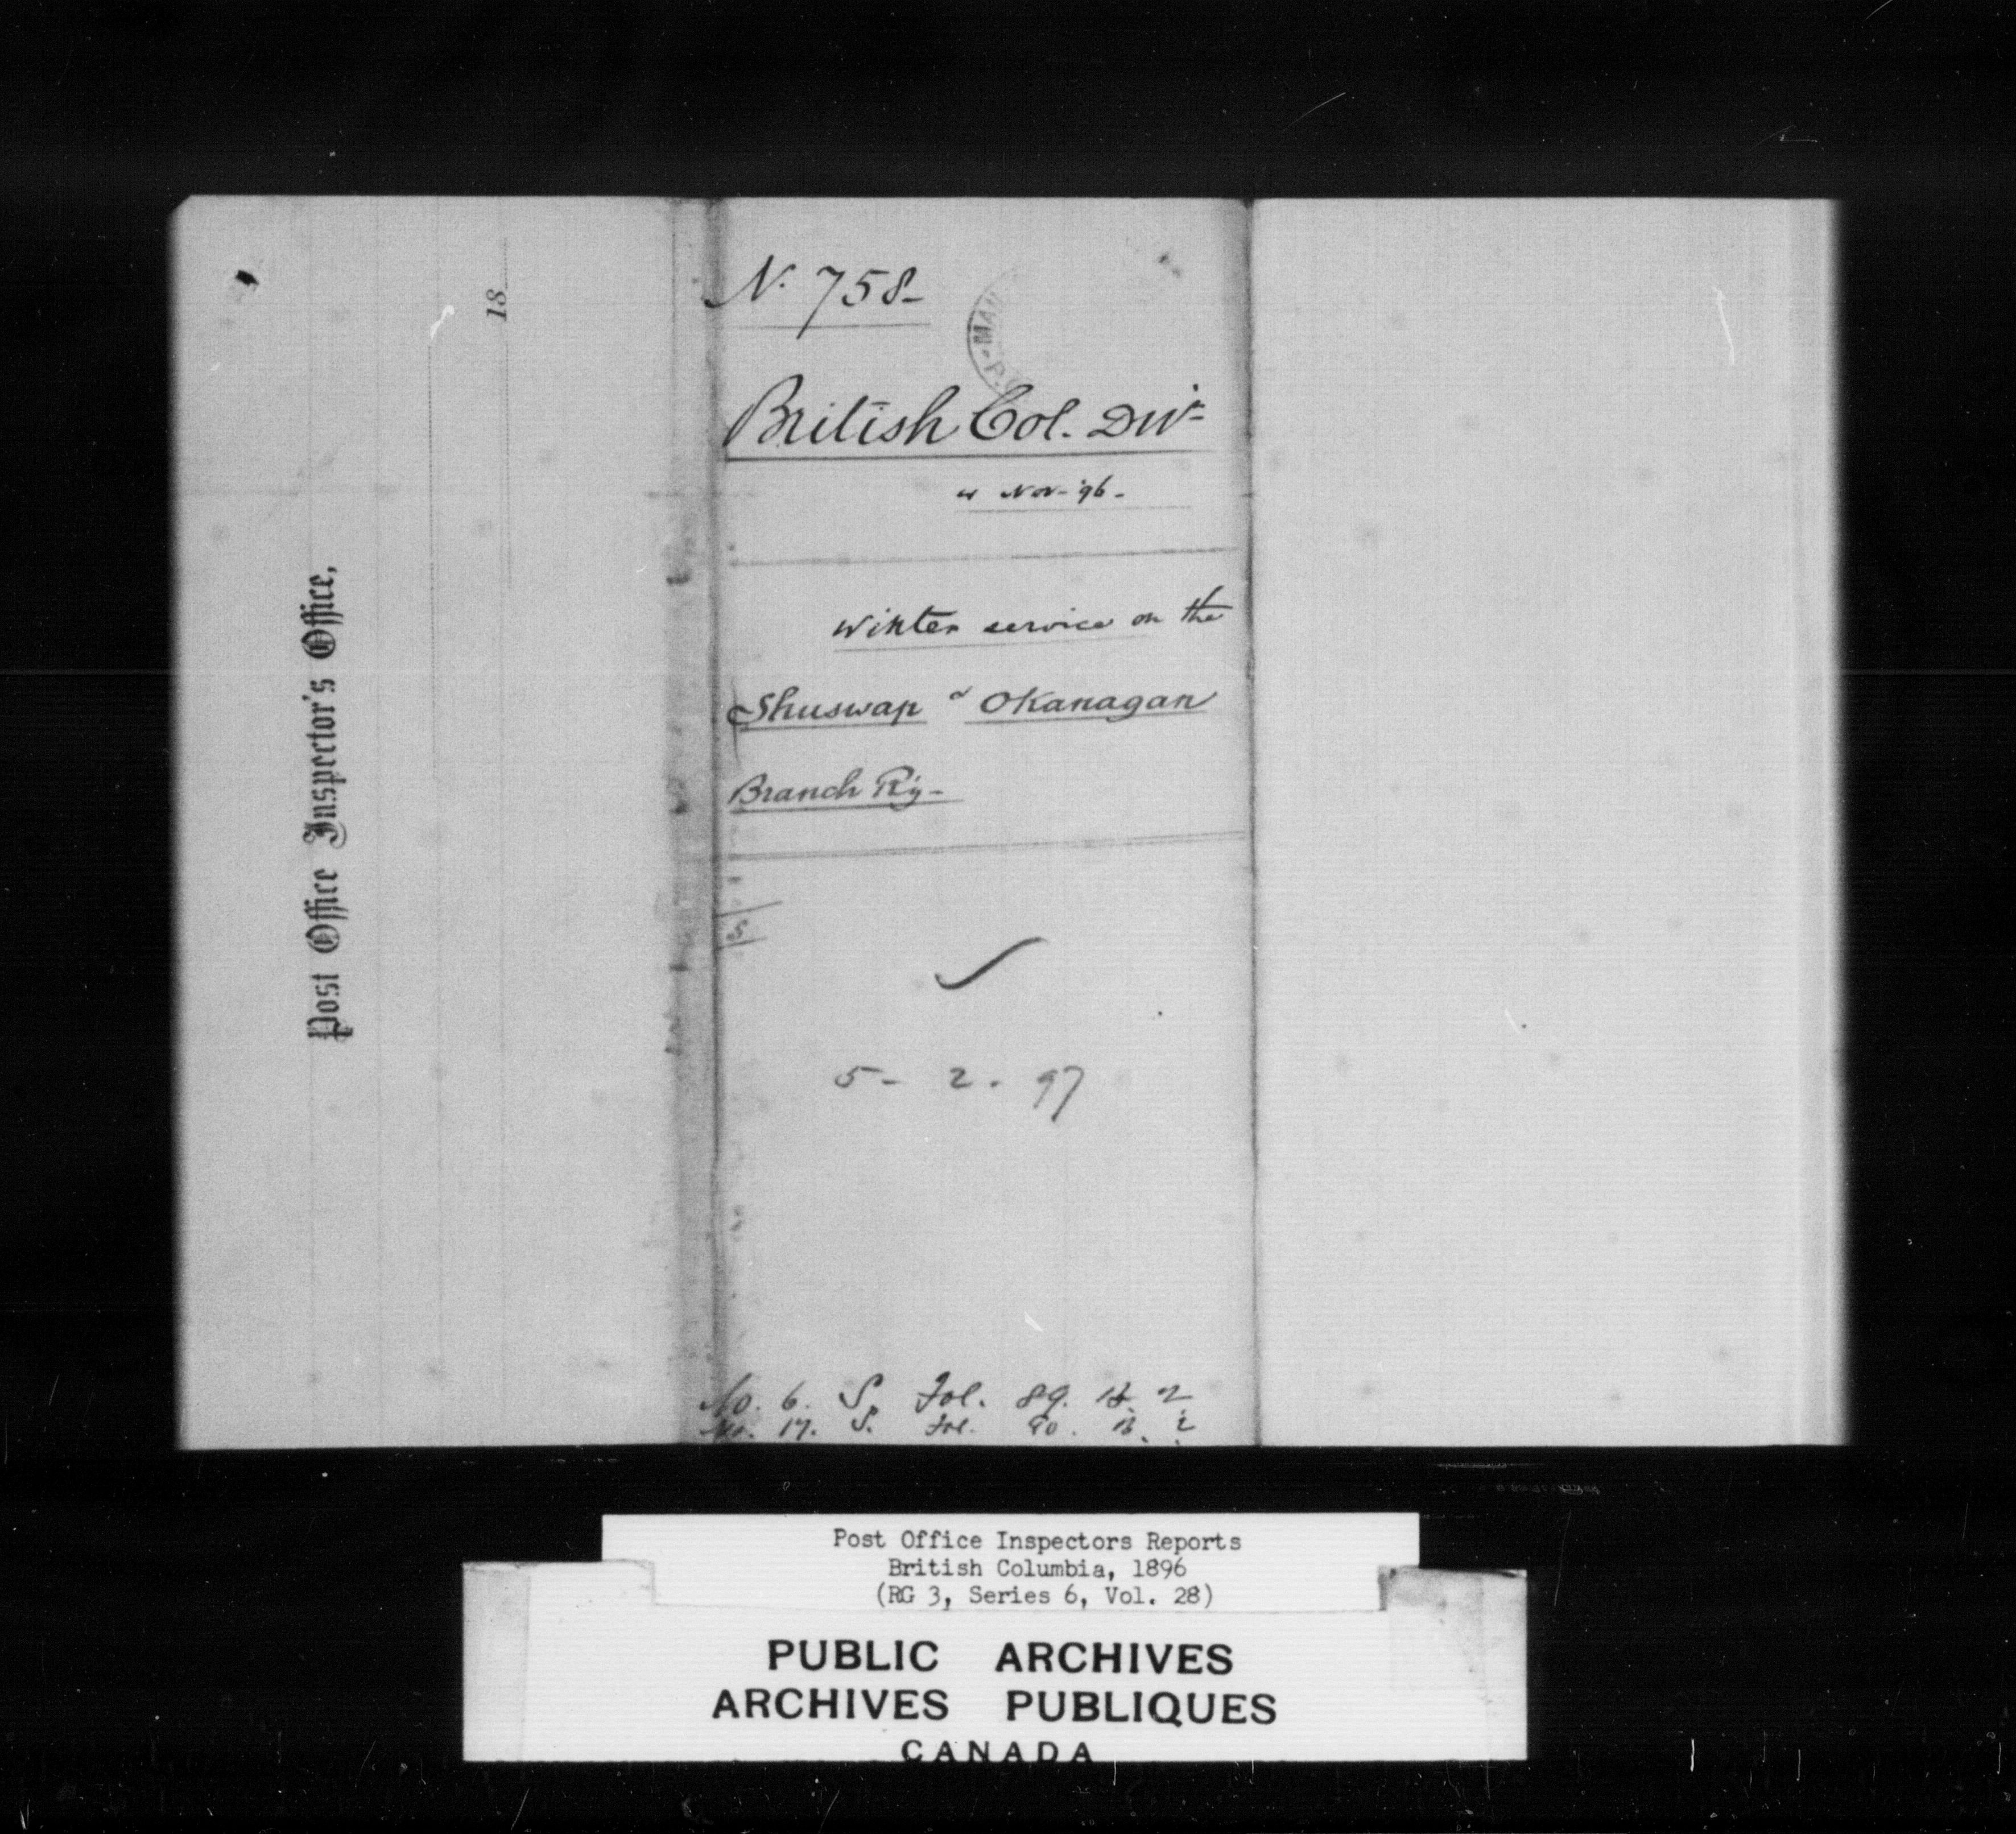 Post Office Inspector's Office,
18
N. 758-
MAIL
British Col. Div-
Nov- '96-
Winter service on the
Shuswap & Okanagan
Branch Ry-
5
5- 2. 97
No. 6. S. Fol. 89. B. 2
No. 17. S. Fol. 90. B. 2
Post Office Inspectors Reports
British Columbia, 1896
(RG 3, Series 6, Vol. 28)
PUBLIC ARCHIVES
ARCHIVES PUBLIQUES
CANADA